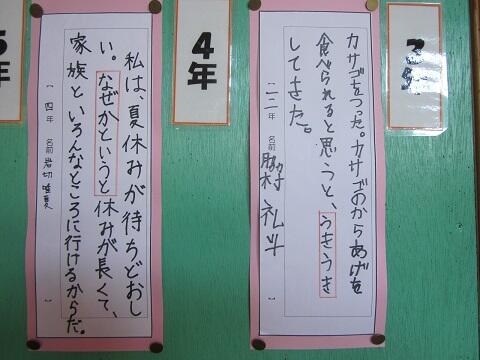 2年
カサゴをつった。カサゴのからあげを
食べられると思うと、うきうき
してきた。
【 二年 名前 脇村 礼斗 】
4年
私は、夏休みが待ちどおし
い。なぜかというと休みが長くて、
家族といろんなところに行けるからだ。
【 四年 名前 岩切 唯夏 】
5年